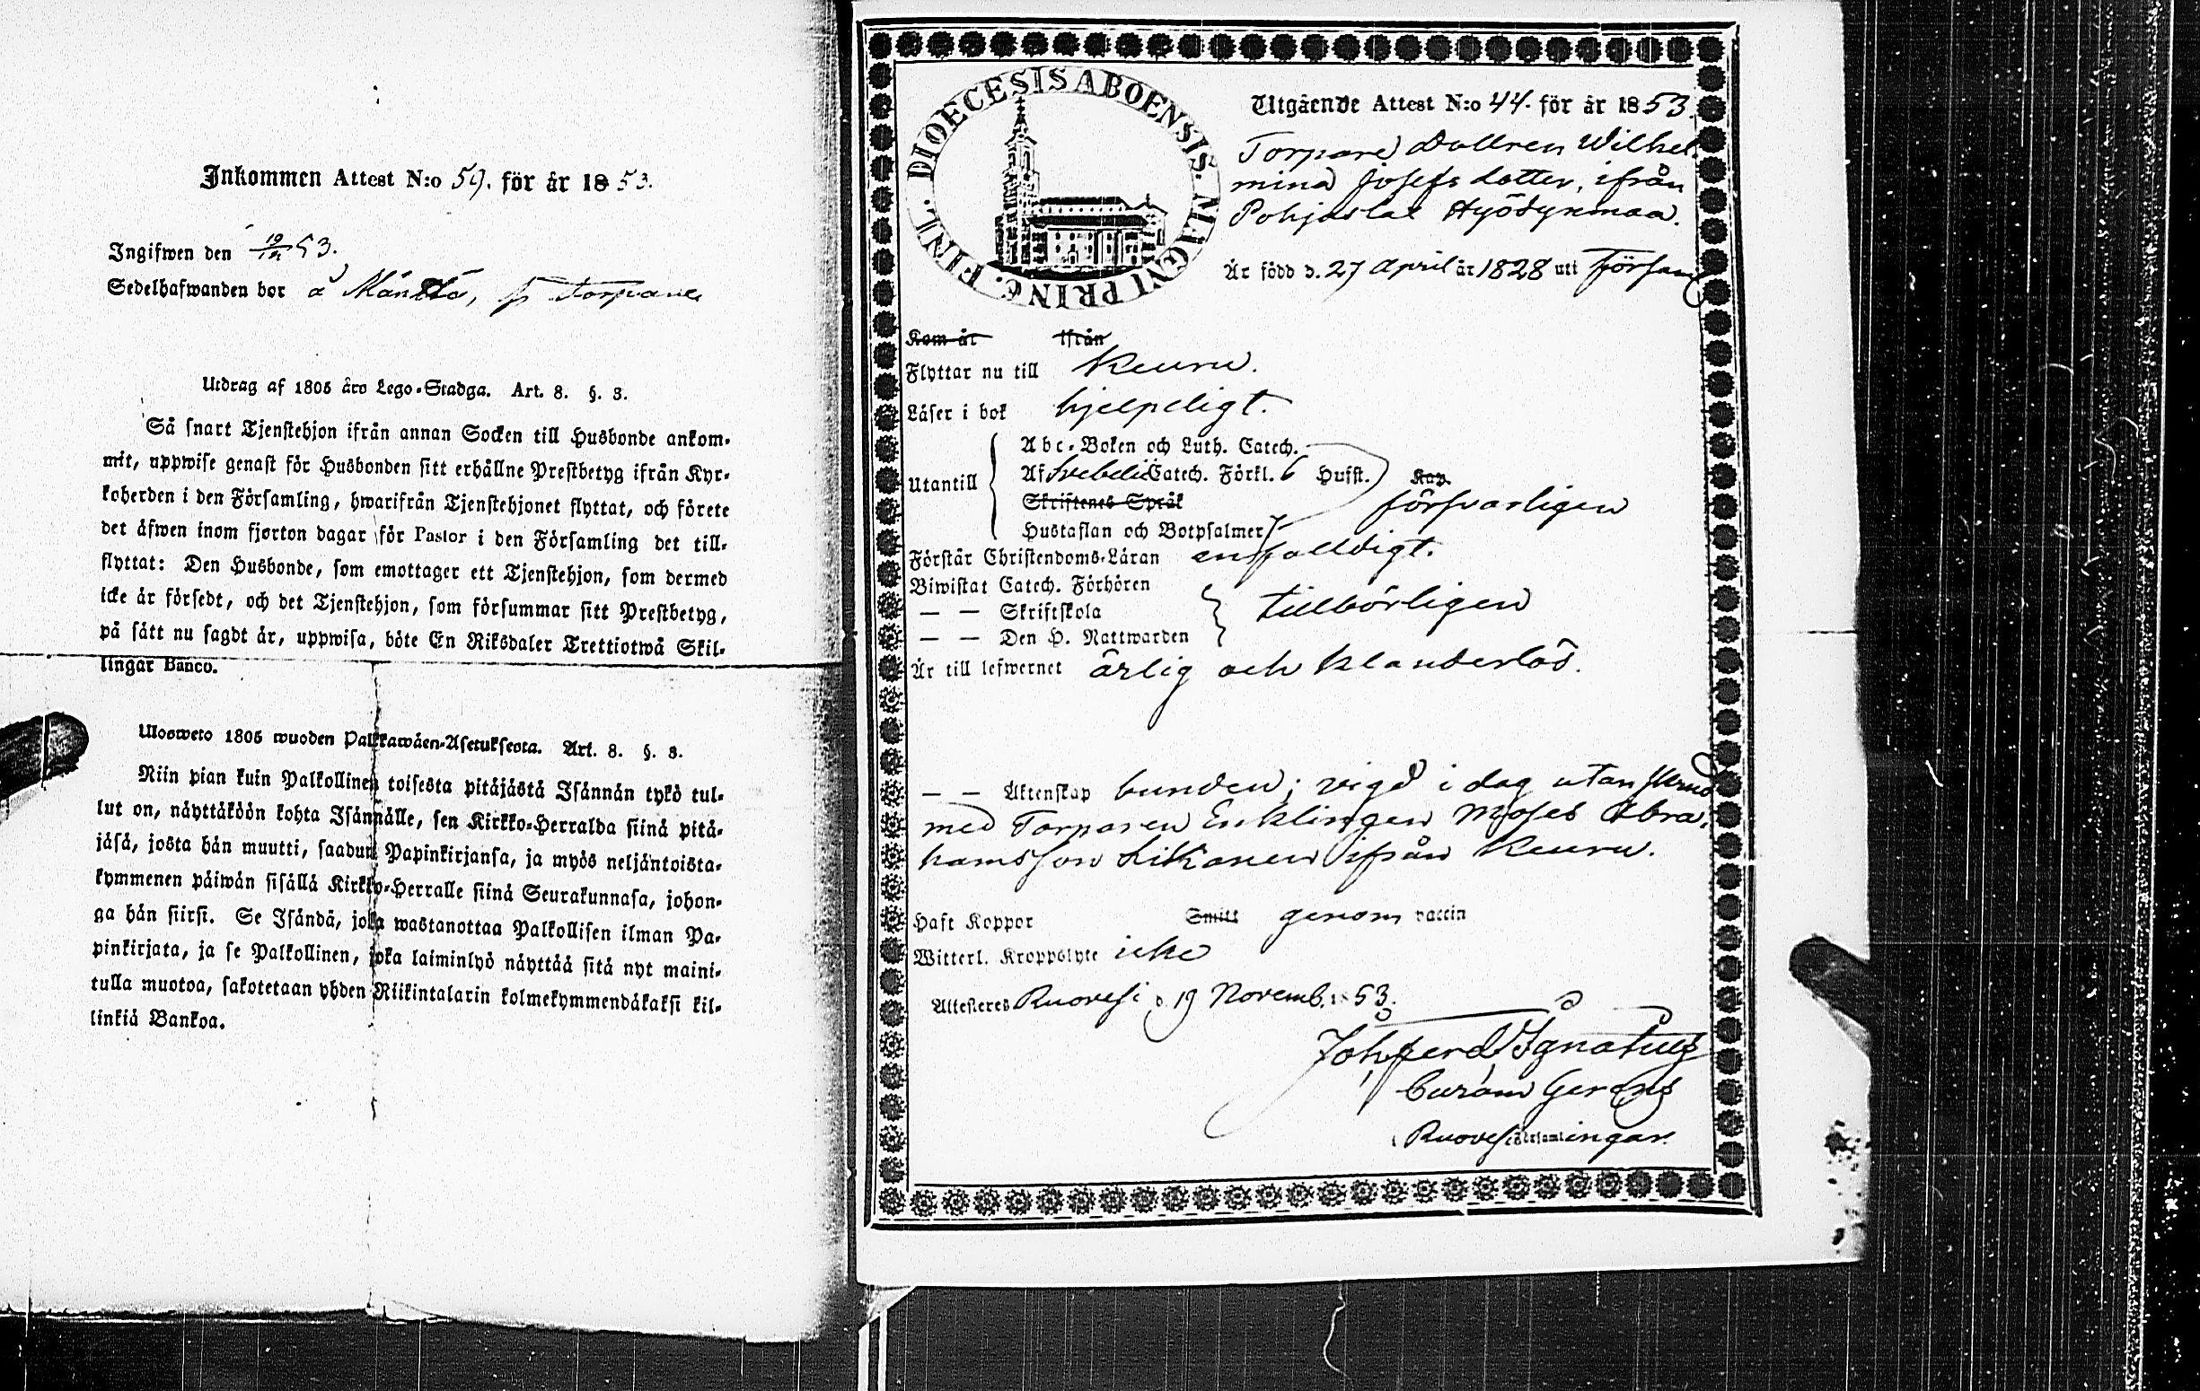 Inkommen Attest N:o 59. för år 1853.
Ingifwen den 19/12 53.
Sedelhafwanden bor å Mänttä, p torpare
Utdrag af 1805 års Lego-Stadga. Art. 8. §. 3.
Så snart Tjenstehjon ifrån annan Socken till Husbonde ankom-
mit, uppwise genast för Husbonden sitt erhållne Prestbetyg ifrån Kyr-
koherden i den Församling, hwarifrån Tjenstehjonet flyttat, och förete
det äfwen inom fjorton dagar för Pastor i den Församling det till-
flyttat: Den Husbonde, som emottager ett Tjenstehjon, som dermed
icke är försedt, och det Tjenstehjon, som försummar sitt Prestbetyg,
på sätt nu sagdt är, uppwisa, böte En Riksdaler Trettiotwå Skil-
lingar Banco.
Ulosweto 1805 wuoden Palkkawäen-Asetuksesta. Art. 8. §. 3.
Niin pian kuin Palkollinen toisesta pitäjästä Isännän tykö tul-
lut on, näyttäköön kohta Isännälle, sen Kirkko-Herralda siinä pitä-
jäsä, josta hän muutti, saadun Papinkirjansa, ja myös neljäntoista-
kymmenen päiwän sisällä Kirkko-Herralle siinä Seurakunnasa, johon-
ga hän siirsi. Se Isändä, joka wastanottaa Palkollisen ilman Pa-
pinkirjata, ja se Palkollinen, joka laiminlyö näyttää sitä nyt maini-
tulla muotoa, sakotetaan yhden Riikintalarin kolmekymmendäkaksi kil-
linkiä Bankoa.
DIOECESIS ABOENSIS. MAGNI PRINC. FINL.
Utgående Attest N:o 44. för år 1853.
Torpare Dottren Wilhel-
mina Josefs dotter, ifrån
Pohjaslax Hyödynmaa.
Är född d. 27 April år 1828 uti Förs
Kom år ifrån
Flyttar nu till Keuru.
Läser i bok hjelpeligt.
Abc-Boken och Luth. Catech.
Utantill Af Svebelii Catech. Förkl. 6 Hufst. Kap.
Skriftenes Språk försvarligen
Hustaflan och Botpsalmer
Förstår Christendoms-Läran enfaldigt.
Biwistat Catech. Förhören
— — Skriftskola tillbörligen
— — Den H. Nattwarden
Är till lefwernet ärlig och klanderlös.
— — Äktenskap bunden; vigd i dag utan
med Torparen Enklingen Moses Abra-
hamsson Likanen ifrån Keuru.
Haft Koppor Smitt genom vaccin
Witterl. Kroppslyte icke
Attesteres Ruovesi d. 19 Novemb. 1853.
Joh Ferd Ignatius
Curam Gerens
i Ruovesi församlingar.